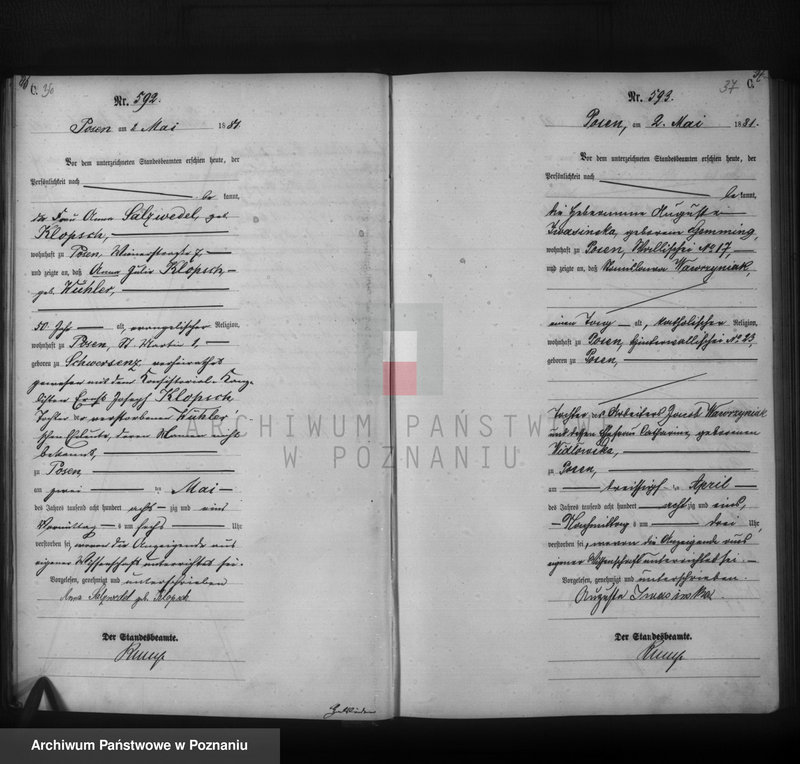 C. 36
Nr. 592.
Posen am 2 Mai 1881.
Vor dem unterzeichneten Standesbeamten erschien heute, der
Persönlichkeit nach
be kannt,
die Frau Anna Salzwedel, geb.
Klopsch,
wohnhaft zu Posen, Wienerstraße 7
und zeigte an, daß Anna Julie Klopsch
geb. Wuhler,
50 Jahr alt, evangelischer Religion,
wohnhaft zu Posen, St. Martin 2,
geboren zu Schwersenz, verheirathet
gewesen mit dem Konsistorial-Kanz-
listen Ernst Joseph Klopsch
Tochter der verstorbenen Wuhler'
schen Eheleute, deren Namen nicht
bekannt,
zu Posen
am zwei ten Mai
des Jahres tausend acht hundert acht zig und eins
Vormittags um sechs Uhr
verstorben sei, wovon die Anzeigende aus
eigener Wissenschaft unterrichtet sei.
Vorgelesen, genehmigt und unterschrieben
Anna Salzwedel geb. Klopsch
Der Standesbeamte.
37 C.
Nr. 593.
Posen, am 2. Mai 1881.
Vor dem unterzeichneten Standesbeamten erschien heute, der
Persönlichkeit nach
be kannt,
die Hebeamme Auguste
Iwasinska, geborene Gemming,
wohnhaft zu Posen, Wallischei No 17,
und zeigte an, daß Stanislawa Wawrzyniak,
einen Tag alt, katholischer Religion,
wohnhaft zu Posen, Hinterwallischei No 23,
geboren zu Posen,
Tochter des Arbeiters Jacob Wawrzyniak
und dessen Ehefrau Catharina, geborenen
zu Posen,
am dreißigsten April
des Jahres tausend acht hundert acht zig und eins,
Nachmittag um drei Uhr,
verstorben sei, wovon die Anzeigende aus
eigener Wissenschaft unterrichtet sei.
Vorgelesen, genehmigt und unterschrieben.
Auguste Iwasinska
Der Standesbeamte.
ARCHIWUM PAŃSTWOWE
W POZNANIU
Archiwum Państwowe w Poznaniu